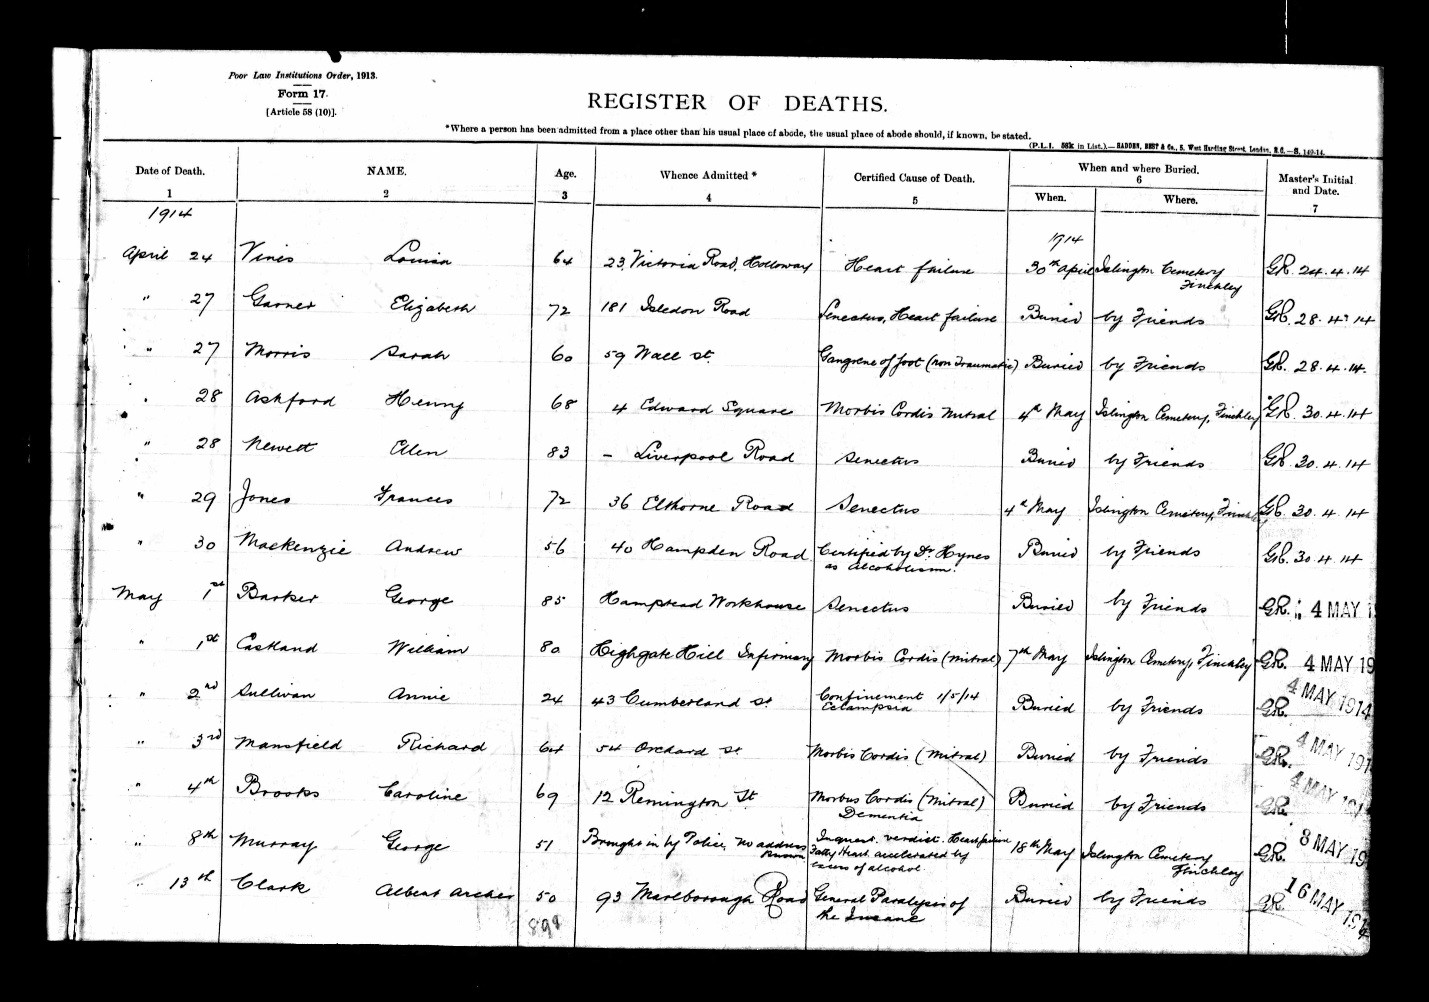 Poor Law Institutions Order, 1913.
Form 17.
[Article 58 (10)].
REGISTER OF DEATHS.
*Where a person has been admitted from a place other than his usual place of abode, the usual place of abode should, if known, be stated.
(P.L.I. 58k in List.).—HADDEN, BEST & Co., 5, West Harding Street, London, E.C.—S. 149-14.
Date of Death. NAME. Age. Whence Admitted * Certified Cause of Death. When and where Buried. Master's Initial and Date.
1 2 3 4 5 6 7
When. Where.
1914
1914
April 24 Vines Louisa 64 23, Victoria Road, Holloway Heart failure 30th April Islington Cemetery Finchley GR. 24.4.14
" 27 Garner Elizabeth 72 181 Isledon Road Senectus, Heart failure Buried by Friends GR. 28.4.14
" 27 Morris Sarah 60 59 Wall St. Gangrene of foot (non Traumatic) Buried by Friends GR. 28.4.14.
" 28 Ashford Henry 68 4 Edward Square Morbis Cordis Mitral 4th May Islington Cemetery, Finchley GR. 30.4.14
" 28 Newett Ellen 83 – Liverpool Road Senectus Buried by Friends GR. 30.4.14
" 29 Jones Frances 72 36 Elthorne Road Senectus 4th May Islington Cemetery, Finchley GR. 30.4.14
" 30 Mackenzie Andrew 56 40 Hampden Road Certified by Dr. Hynes Buried by Friends GR. 30.4.14
as alcoholism.
May 1st Barker George 85 Hampstead Workhouse Senectus Buried by Friends GR. 4 MAY 19
" 1st Eastland William 80 Highgate Hill Infirmary Morbis Cordis (Mitral) 7th May Islington Cemetery, Finchley GR. 4 MAY 19
" 2nd Sullivan Annie 24 43 Cumberland St. Confinement 1/5/14 Buried by Friends GR. 4 MAY 1914
Eclampsia
" 3rd Mansfield Richard 64 54 Orchard St Morbis Cordis (Mitral) Buried by Friends GR. 4 MAY 191
" 4th Brooks Caroline 69 12 Remington St Morbus Cordis (Mitral) Buried by Friends GR. 4 MAY 191
Dementia
" 8th Murray George 51 Brought in by Police, no address known Inquest. verdict. Heart failure 18th May Islington Cemetery Finchley GR. 8 MAY 19
Fatty Heart accelerated by
excess of alcohol.
" 13th Clark Albert Archer 50 93 Marlborough Road General Paralysis of Buried by Friends GR. 16 MAY 191
the Insane